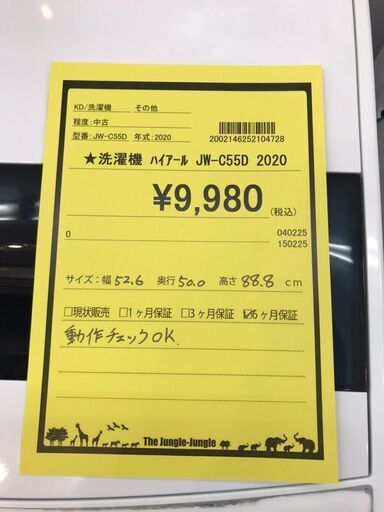 KD/洗濯機 その他
程度:中古
型番:JW-C55D 年式:2020
2002146252104728
★洗濯機 ハイアール JW-C55D 2020
¥9,980(税込)
0 040225
150225
サイズ:幅 52.6 奥行 50.0 高さ 88.8 cm
□現状販売 □1ヶ月保証 □3ヶ月保証 ☑6ヶ月保証
動作チェックOK.
The Jungle-Jungle